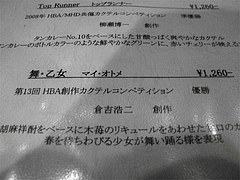 Top Runner トップランナー ¥1,260-
2008年 HBA/MHD共催カクテルコンペティション 優勝
柳瀬博一 創作
タンカレーNo.10をベースにした甘酸っぱく爽やかなカクテル
タンカレーのボトルカラーのような鮮やかなグリーンに、赤いチェリーが映え
舞・乙女 マイ・オトメ ¥1,260-
第13回 HBA創作カクテルコンペティション 優勝
倉吉浩二 創作
胡麻祥酎をベースに木苺のリキュールをあわせた 口のカ
春を待ちわびる少女が舞い踊る様を表現